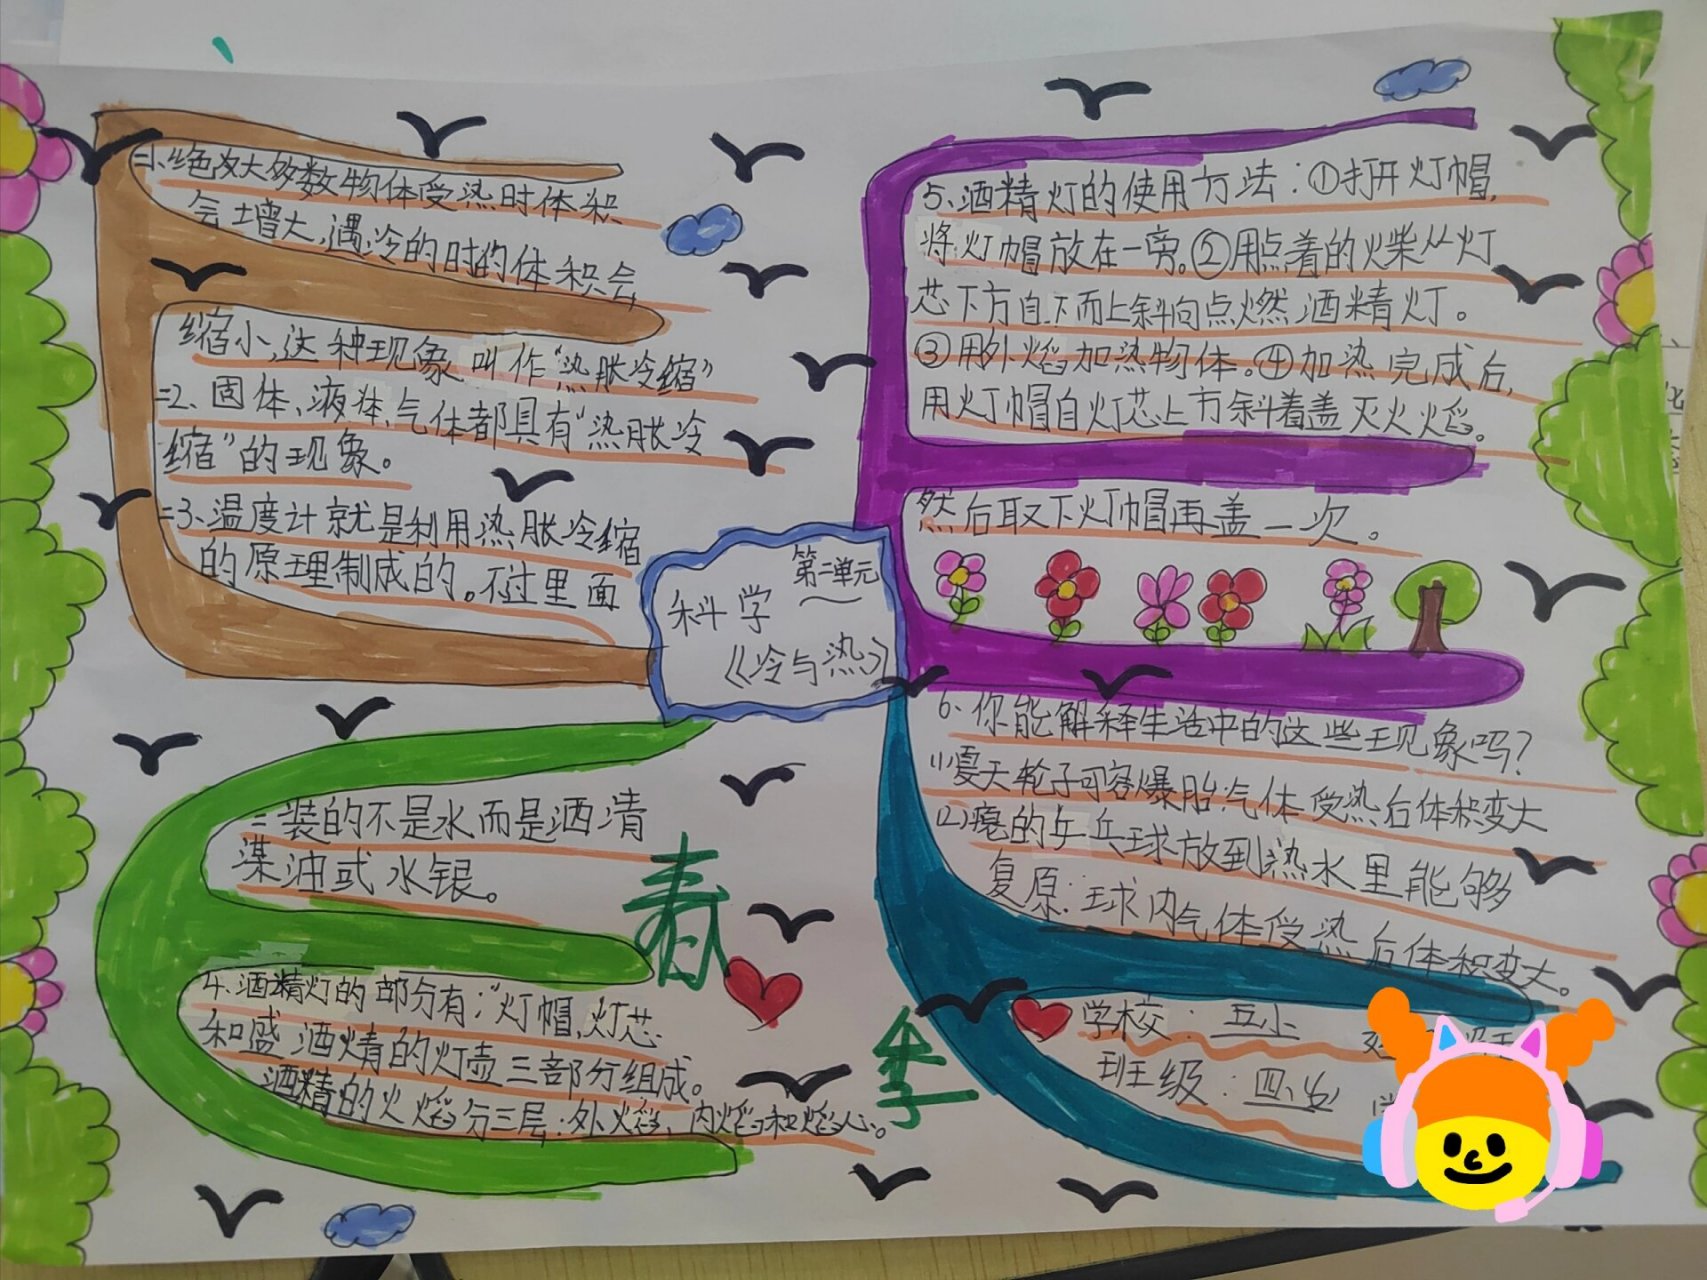 科学 第二单元
《冷与热》
1、绝大多数物体受热时体积
会增大,遇冷的时的体积会
缩小,这种现象叫作“热胀冷缩”
2、固体、液体、气体都具有“热胀冷
缩”的现象。
3、温度计就是利用热胀冷缩
的原理制成的。不过里面
装的不是水而是酒清
煤油或水银。
4、酒精灯的部分有:“灯帽,灯芯
和盛酒精的灯壶三部分组成。
酒精的火焰分三层:外焰、内焰和焰心。
春
季
5、酒精灯的使用方法:①打开灯帽,
将灯帽放在一旁。②用点着的火柴从灯
芯下方自下而上斜向点燃酒精灯。
③用外焰加热物体。④加热完成后,
用灯帽自灯芯上方斜着盖灭火焰。
然后取下灯帽再盖一次。
6、你能解释生活中的这些现象吗?
(1)夏天轮子可容爆胎气体受热后体积变大
(2)瘪的乒乓球放到热水里能够
复原:球内气体受热后体积变大。
学校:五小
班级:四、